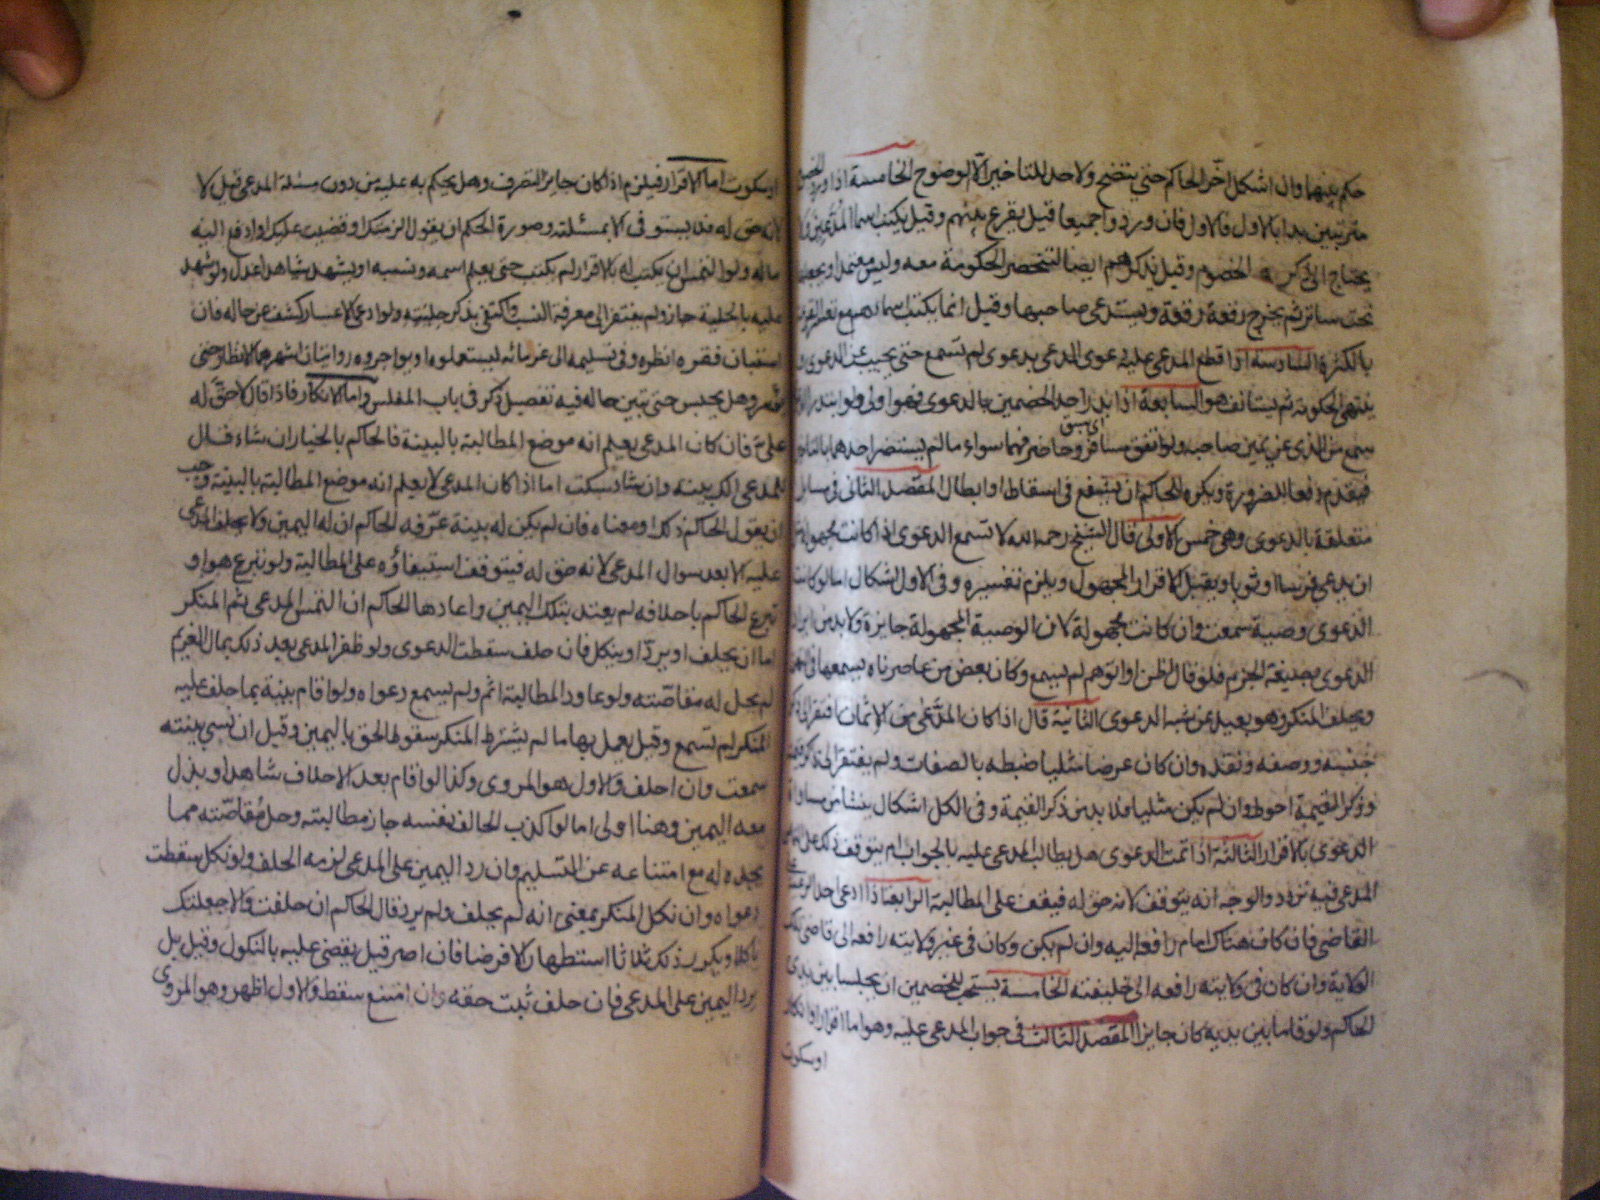 حكم بينهما وان اشكل اخّر الحاكم حتى يتضح ولا حد للتاخير الّا لوضوح الخامسة اذا ورد
مترتبين بدا بالاول فالاول فان وردوا جميعا قيل يقرع بينهم وقيل يكتب اسما المدعين ولا
يحتاج الى ذكر الخصوم وقيل يذكرهم ايضا لتنحصر الحكومة معه وليس معتمدا ويجعلها
تحت ساتر ثم يخرج رقعة رقعة ويستدعى صاحبها وقيل انما يكتب اسماءهم مع تعسر القرعة
بالكثرة السادسة اذا قطع المدعى عليه دعوى المدعى بدعوى لم تسمع حتى يجيب عن الدعوى و
ينتهى الحكومة ثم يستانف هو السابعة اذا بدر احد الخصمين بالدعوى فهو اولى ولو ابتدرا
اى سبق
سمع من الذى عن يمين صاحبه ولو اتفق مسافر وحاضر فهما سواء ما لم يستضر احدهما بالتاخير
فيقدم دفعا للضرورة ويكره للحاكم ان يشفع فى اسقاط او ابطال المقصد الثانى فى مسايل
متعلقة بالدعوى وهى خمس الاولى قال الشيخ رحمه الله لا تسمع الدعوى اذا كانت مجهولة
ان يدعى فرسا او ثوبا ويقبل الاقرار المجهول ويلزم تفسيره وفى الاول اشكال اما لو كانت
الدعوى وصية سمعت وان كانت مجهولة لان الوصية المجهولة جايزة ولا بد من ايراد
الدعوى بصيغة الجزم فلو قال اظن او اتوهم لم يسمع وكان بعض من عاصرناه يسمعها فى التهمة
ويحلف المنكر وهو بعيد عن شبه الدعوى الثانية قال اذا كان المدعى من الاثمان افتقر الى ذكر
جنسه ووصفه ونقده وان كان عرضا مثليا ضبطه بالصفات ولم يفتقر الى ذكر قيمته
وذكر القيمة احوط وان لم يكن مثليا فلا بد من ذكر القيمة وفى الكل اشكال ينشا من مساواة
الدعوى بالاقرار الثالثة اذا تمت الدعوى هل يطالب المدعى عليه بالجواب ام يتوقف ذلك على
المدعى فيه تردد والوجه انه يتوقف لانه حق له فيقف على المطالبة الرابعة اذا ادعى احد الرعية على
القاضى فان كان هناك امام رافعه اليه وان لم يكن وكان فى غير ولايته رافعه الى قاضى تلك
الولاية وان كان فى ولايته رافعه الى خليفته الخامسة يستحب للخصمين ان يجلسا بين يدى
الحاكم ولو قاما بين يديه كان جايزا المقصد الثالث فى جواب المدعى عليه وهو اما اقرار او انكار
او سكوت
او سكوت اما الاقرار فيلزم اذا كان جايز التصرف وهل يحكم به عليه من دون مسئلة المدعى قيل لا
لانه حق له فلا يستوفى الا بمسئلته وصورة الحكم ان يقول الزمتك او قضيت عليك او ادفع اليه
ماله ولو التمس ان يكتب له بالاقرار لم يكتب حتى يعلم اسمه ونسبه او يشهد شاهدا عدل ولو شهد
عليه بالحلية جاز ولم يفتقر الى معرفة النسب واكتفى بذكر حليته ولو ادعى الاعسار كشف عن حاله فان
استبان فقره انظره وفى تسليمه الى غرمائه ليستعملوه او يواجروه روايتان اشهرهما الانظار حتى
يوسر وهل يحبس حتى يتبين حاله فيه تفصيل ذكر فى باب المفلس واما الانكار فاذا قال لا حقّ له
علىّ فان كان المدعى يعلم انه موضع المطالبة بالبينة فالحاكم بالخيار ان شاء قال
للمدعى الك بينة وان شاء سكت اما اذا كان المدعى لا يعلم انه موضع المطالبة بالبينة وجب
ان يقول الحاكم ذلك او معناه فان لم يكن له بينة عرّفه الحاكم ان له اليمين ولا يحلف المدعى
عليه الا بعد سوال المدعى لانه حق له فيتوقف استيفاؤه على المطالبة ولو تبرع هو او
تبرع الحاكم باحلافه لم يعتد بتلك اليمين واعادها الحاكم ان التمس المدعى ثم المنكر
اما ان يحلف او يردّ او ينكل فان حلف سقطت الدعوى ولو ظفر المدعى بعد ذلك بمال الغريم
لم يحل له مقاصّته ولو عاود المطالبة اثم ولم يسمع دعواه ولو اقام بينة بما حلف عليه
المنكر لم تسمع وقيل يعمل بها ما لم يشترط المنكر سقوط الحق باليمين وقيل ان نسى بينته
سمعت وان احلف والاول هو المروى وكذا لو اقام بعد الاحلاف شاهدا وبذل
معه اليمين وهنا اولى اما لو اكذب الحالف نفسه جاز مطالبته وحل مُقاصّته مما
يجده له مع امتناعه عن التسليم وان رد اليمين على المدعى لزمه الحلف ولو نكل سقطت
دعواه وان نكل المنكر بمعنى انه لم يحلف ولم يرد قال الحاكم ان حلفت والا جعلتك
ناكلا ويكرر ذلك ثلاثا استظهارا لا فرضا فان اصر قيل يقضى عليه بالنكول وقيل بل
يرد اليمين على المدعى فان حلف ثبت حقه وان امتنع سقط والاول اظهر وهو المروى